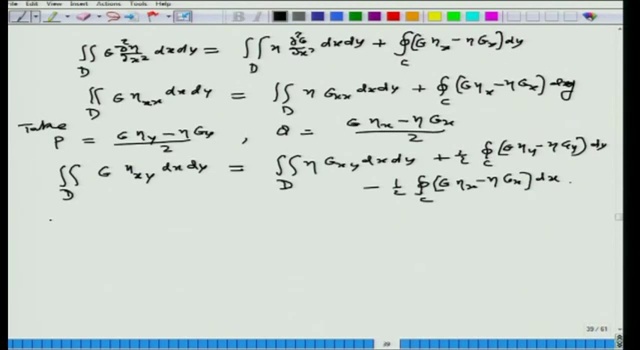 File Edit View Insert Actions Tools Help
∬_D G ∂²η/∂x² dxdy = ∬_D η ∂²G/∂x² dxdy + ∮_C (G η_x − η G_x) dy
∬_D G η_xx dxdy = ∬_D η G_xx dxdy + ∮_C (G η_x − η G_x) dy
Take P = (G η_y − η G_y)/2 , Q = (G η_x − η G_x)/2
∬_D G η_xy dxdy = ∬_D η G_xy dxdy + ½ ∮_C (G η_y − η G_y) dy
− ½ ∮_C (G η_x − η G_x) dx .
29 / 61
29